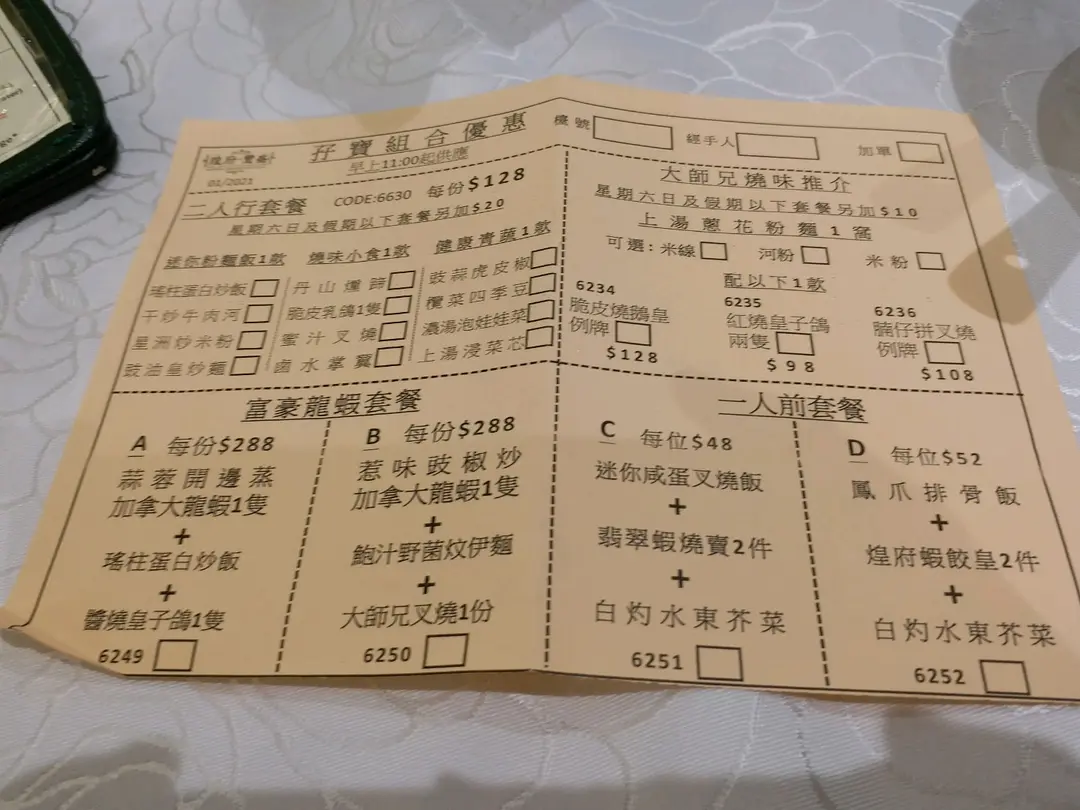 孖寶組合優惠
早上11:00起供應
01/2021
檯號
經手人
加單
二人行套餐
CODE:6630 每份$128
星期六日及假期以下套餐另加$20
迷你粉麵飯1款 燒味小食1款 健康青蔬1款
瑤柱蛋白炒飯 丹山燻蹄 豉蒜虎皮椒
干炒牛肉河 脆皮乳鴿1隻 欖菜四季豆
星洲炒米粉 蜜汁叉燒 濃湯泡娃娃菜
豉油皇炒麵 鹵水掌翼 上湯浸菜芯
大師兄燒味推介
星期六日及假期以下套餐另加$10
上湯蔥花粉麵1窩
可選:米線 河粉 米粉
配以下1款
6234
脆皮燒鵝皇
例牌
$128
6235
紅燒皇子鴿
兩隻
$98
6236
腩仔拼叉燒
例牌
$108
富豪龍蝦套餐
A 每份$288
蒜蓉開邊蒸
加拿大龍蝦1隻
+
瑤柱蛋白炒飯
+
醬燒皇子鴿1隻
6249
B 每份$288
惹味豉椒炒
加拿大龍蝦1隻
+
鮑汁野菌炆伊麵
+
大師兄叉燒1份
6250
一人前套餐
C 每位$48
迷你咸蛋叉燒飯
+
翡翠蝦燒賣2件
+
白灼水東芥菜
6251
D 每位$52
鳳爪排骨飯
+
煌府蝦餃皇2件
+
白灼水東芥菜
6252